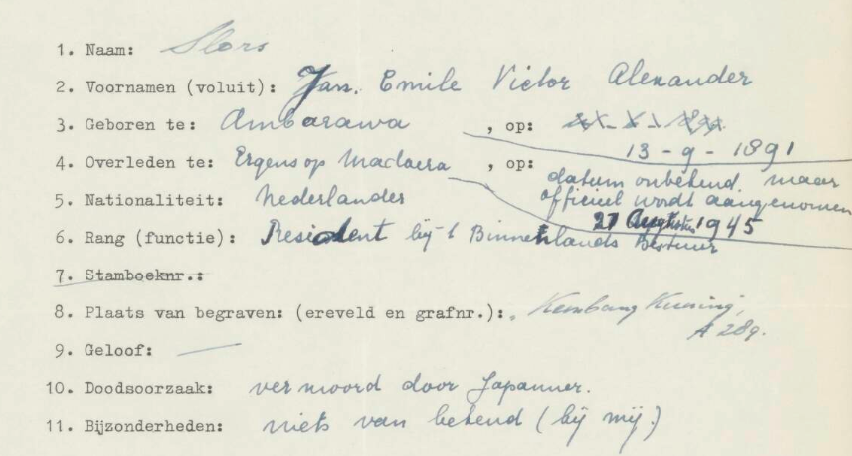 1. Naam: Slors
2. Voornamen (voluit): Jan. Emile Victor Alexander
3. Geboren te: Ambarawa , op:
13 - 9 - 1891
4. Overleden te: Ergens op Madoera , op: datum onbekend. maar
officieel wordt aangenomen
5. Nationaliteit: Nederlander
27 Augustus 1945
6. Rang (functie): Resident bij 't Binnenlands Bestuur
7. Stamboeknr.:
8. Plaats van begraven: (ereveld en grafnr.): Kembang Kuning,
A 289.
9. Geloof: —
10. Doodsoorzaak: vermoord door Japanner.
11. Bijzonderheden: niets van bekend (bij mij.)